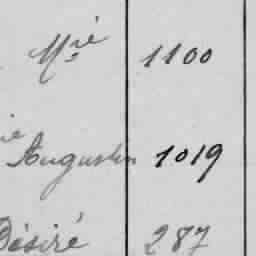 Mie 1100
Augustin 1019
Désiré 287